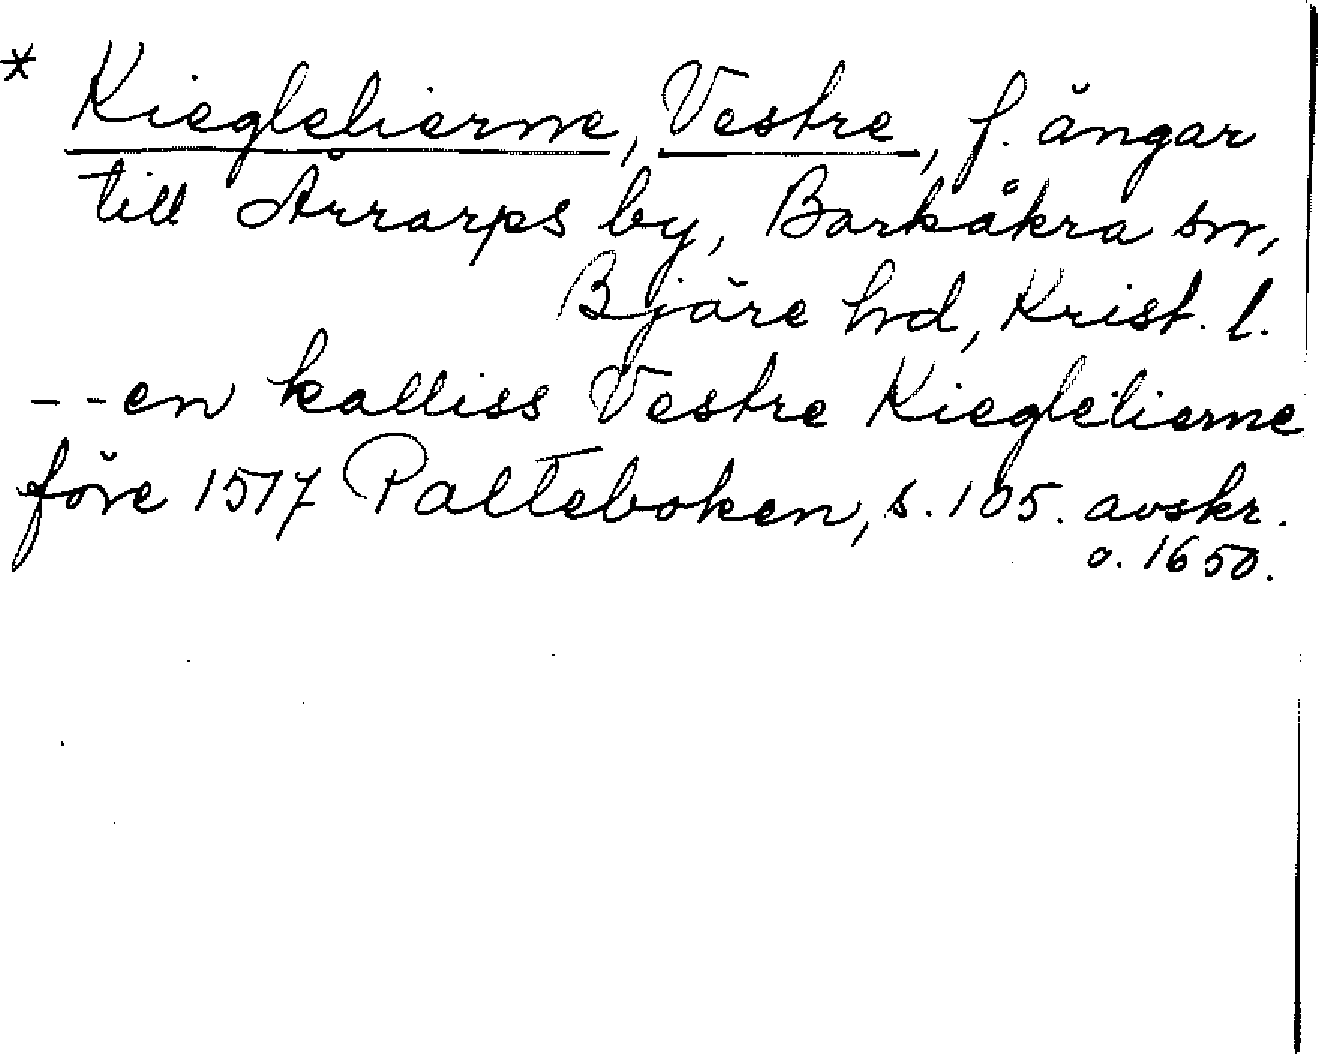 * Kieglelierne, Vestre, f. ängar
till Årrarps by, Barkåkra sn,
Bjäre hd, Krist. l.
--en kalliss Vestre Kieglelierne
före 1517 Palteboken, s. 105. avskr.
o. 1650.